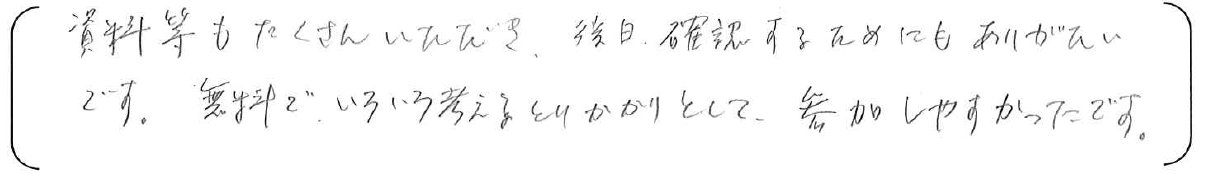 資料等もたくさんいただき、後日、確認するためにもありがたい
です。無料で、いろいろ考えるとりかかりとして、参加しやすかったです。